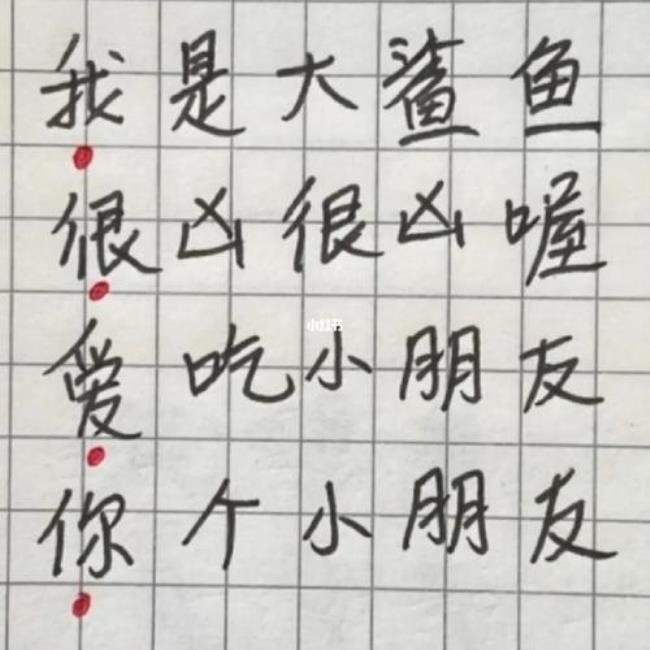 我是大鲨鱼
很凶很凶喔
小红书
爱吃小朋友
你个小朋友